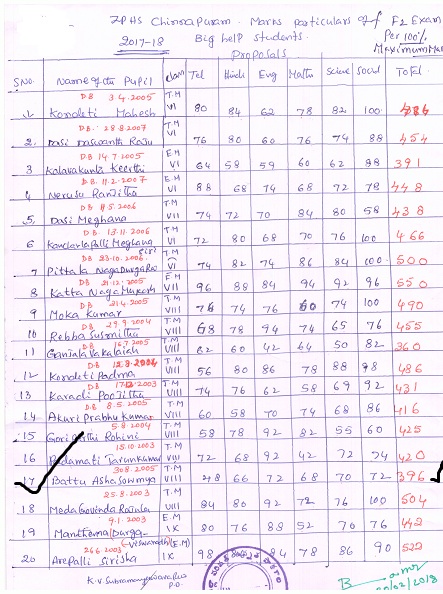 ZPHS Chinsapuram. Marks particulars of F2 Exam
2017-18 Big help students. Per 100%
Proposals Maximum Mar
S.NO. Name of the Pupil class Tel Hindi Eng Maths Science Social Total
D.B 3.4.2005 T.M
1 Kondeti Mahesh VI 80 84 62 78 82 100
D.B. 28.8.2007 T.M
2. Dasi Jaswanth Raju VI 76 80 60 76 74 88 454
D.B. 14.7.2005 E.M
3 Kalavakunta Keerthi VI 64 58 59 60 62 88 391
D.B. 11.2.2007 E.M
4 Nerusu Ranjitha VI 88 68 74 68 72 78 448
D.B. 11.5.2006 T.M
5. Dasi Meghana VII 74 72 70 84 80 58 438
D.B. 13.11.2006 T.M
6 Kondarlapalli Meghana VI 72 80 68 70 76 100 466
D.B. 23.10.2006 T.M
7 Pittala Naga Durga VI 74 82 74 86 84 100 500
D.B. 21.12.2005 E.M
8 Katta Naga VII 96 88 84 94 92 96 550
D.B. 21.4.2005 T.M
9 Moka Kumar VIII 76 74 76 60 74 100 490
D.B. 29.9.2004 T.M
10 Rebba Susmitha VIII 68 78 94 74 65 76 455
D.B. 16.7.2005 T.M
11 Ganjala Vakalaiah VIII 62 60 42 64 50 82 360
D.B. T.M
12 Kondeti Padma VIII 56 80 86 78 88 98 486
D.B. 2003 T.M
13 Karadi Poojitha VIII 74 76 62 58 69 92 431
D.B. 8.5.2005 T.M
14 Akuri Prabhu Kumar VIII 60 58 70 74 68 86 416
5.8.2004 T.M
15 Rohini VIII 58 78 92 82 55 60 425
15.10.2003 T.M
16 Tarun Kumar VIII 72 68 92 42 72 74 420
30.8.2005 T.M
17 Battu Asha Sowmya VIII 48 66 72 68 70 72 396
25.8.2003 T.M
18 Meda Govinda VIII 84 80 92 72 76 100 504
9.1.2003 E.M
19 Durga IX 80 76 88 52 70 76 442
26.6.2003 (E.M)
20 Arepalli Sirisha IX 98 84 78 86 90 522